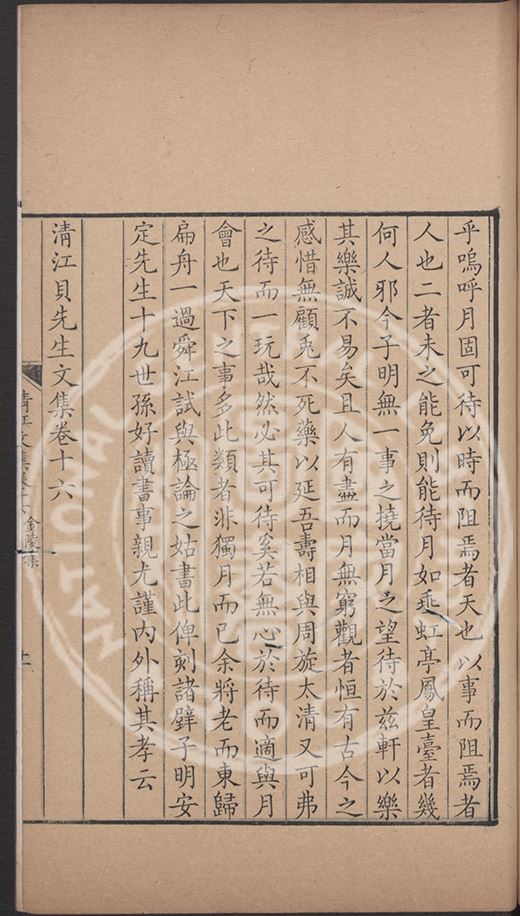 乎嗚呼月固可待以時而阻焉者天也以事而阻焉者
人也二者未之能免則能待月如乘虹亭鳳皇臺者幾
何人邪今子明無一事之撓當月之望待於茲軒以樂
其樂誠不易矣且人有盡而月無窮觀者恒有古今之
感惜無顧兎不死藥以延吾壽相與周旋太清又可弗
之待而一玩哉然必其可待奚若無心於待而適與月
會也天下之事多此類者非獨月而已余將老而東歸
扁舟一過舜江試與極論之姑書此俾刻諸壁子明安
定先生十九世孫好讀書事親尤謹內外稱其孝云
清江貝先生文集卷十六
清江文集卷十六 金陵集
NATIONAL